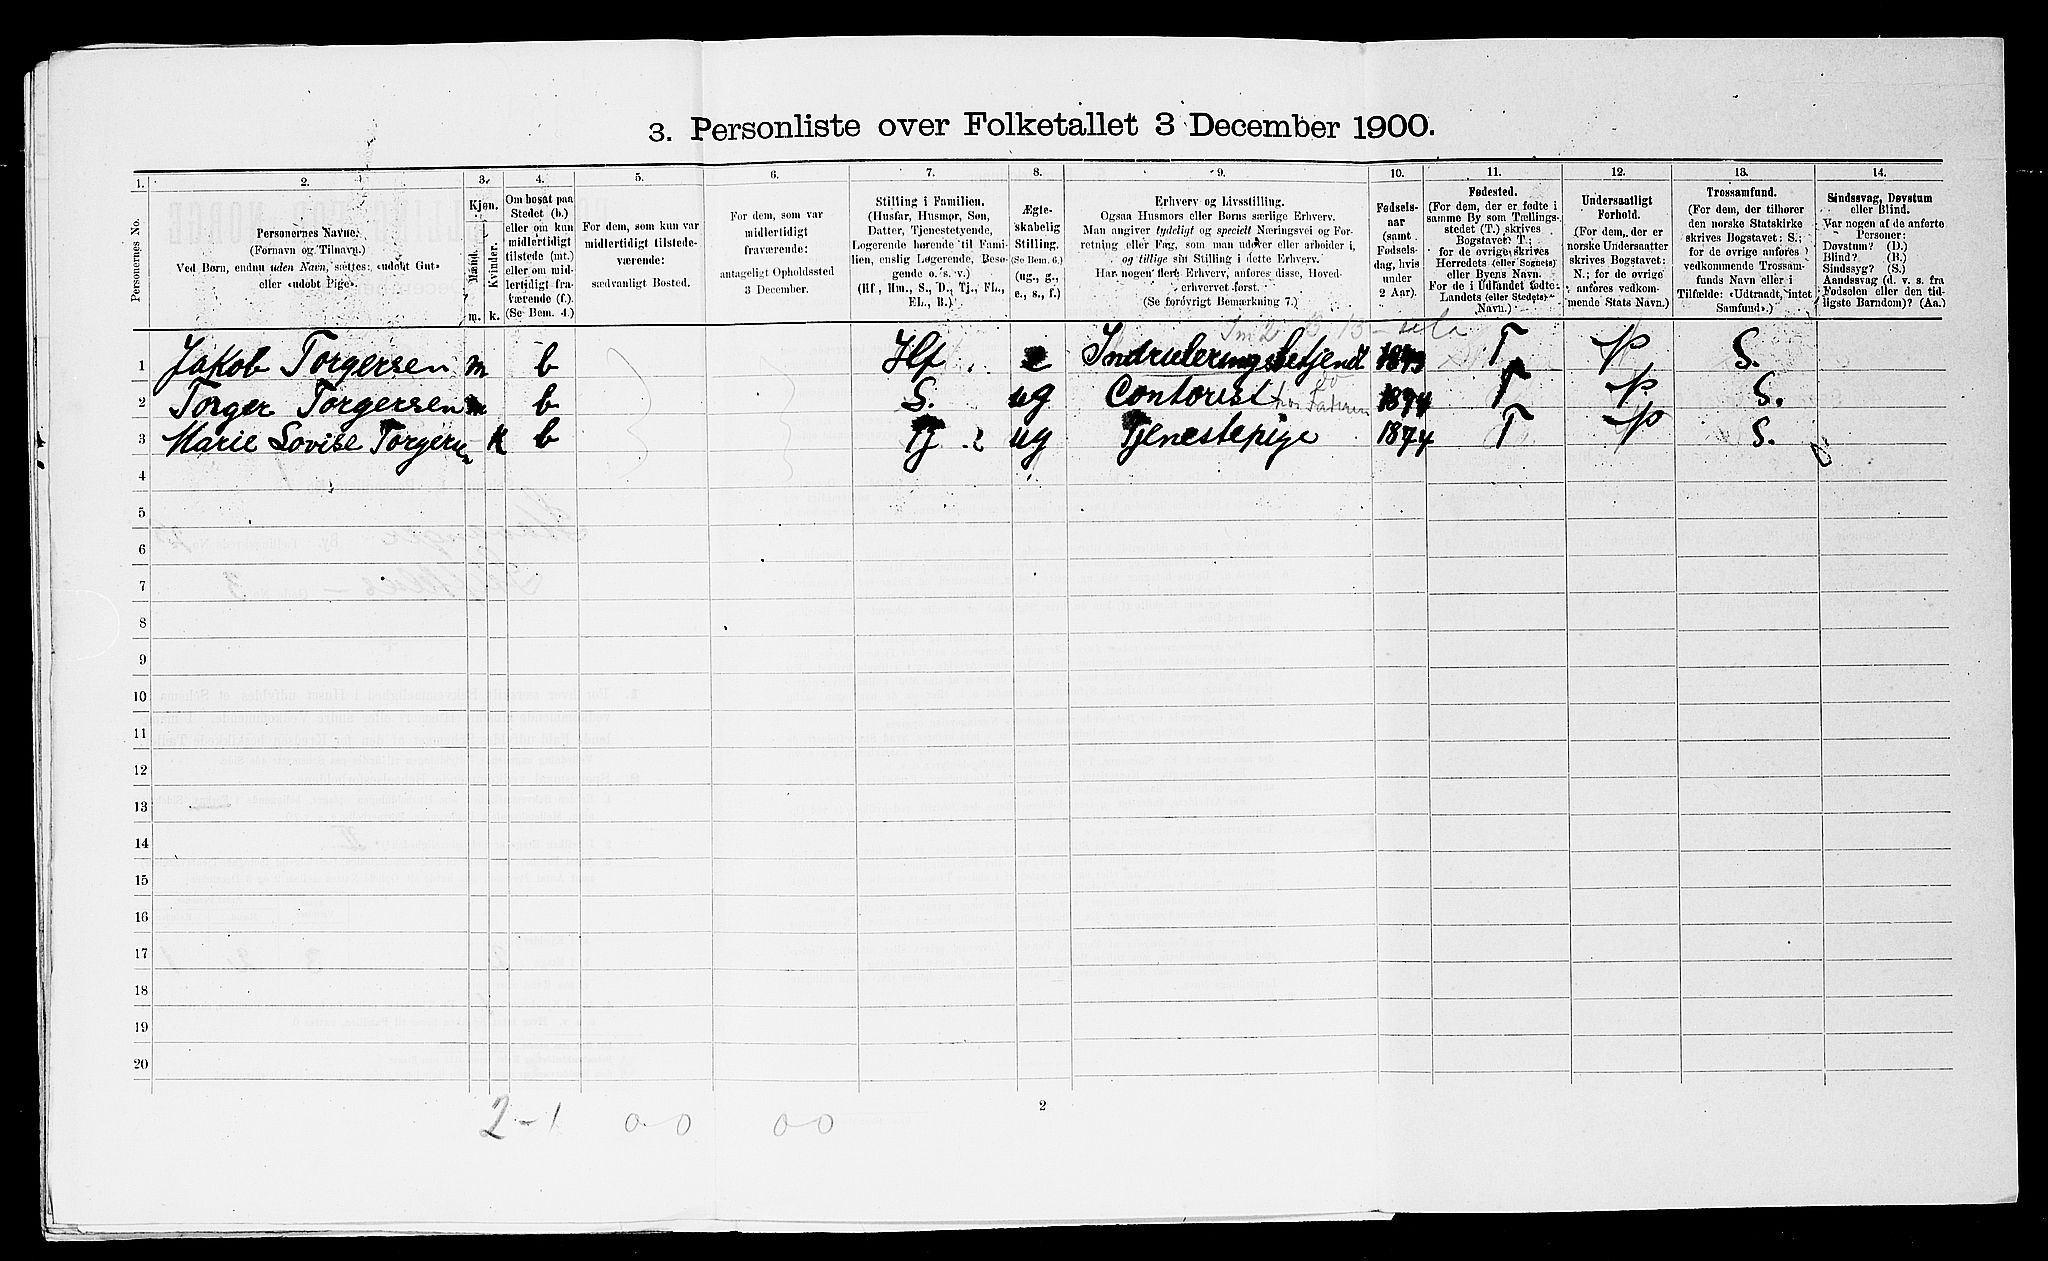 3. Personliste over Folketallet 3 December 1900.
1.
Personernes No.
2.
Personernes Navne.
(Fornavn og Tilnavn.)
Ved Børn, endnu uden Navn, sættes: «udøbt Gut»
eller «udøbt Pige».
3.
Kjøn.
Mænd.
Kvinder.
m.
k.
4.
Om bosat paa
Stedet (b.)
eller om kun
midlertidigt
tilstede (mt.)
eller om mid-
lertidigt fra-
værende (f.).
(Se Bem. 4.)
5.
For dem, som kun var
midlertidigt tilstede-
værende:
sædvanligt Bosted.
6.
For dem, som var
midlertidigt
fraværende:
antageligt Opholdssted
3 December.
7.
Stilling i Familien.
(Husfar, Husmor, Søn,
Datter, Tjenestetyende,
Logerende hørende til Fami-
lien, enslig Logerende, Besø-
gende o. s. v.)
(Hf, Hm., S., D., Tj., FL.,
EL., B.)
8.
Ægte-
skabelig
Stilling.
(Se Bem. 6.)
(ug., g.,
e., s., f.)
9.
Erhverv og Livsstilling.
Ogsaa Husmors eller Børns særlige Erhverv.
Man angiver tydeligt og specielt Næringsvei og For-
retning eller Fag, som man udøver eller arbeider i,
og tillige sin Stilling i dette Erhverv.
Har nogen flere Erhverv, anføres disse, Hoved-
erhvervet først.
(Se forøvrigt Bemærkning 7.)
10.
Fødsels-
aar
(samt
Fødsels-
dag, hvis
under
2 Aar).
11.
Fødested.
(For dem, der er fødte i
samme By som Tællings-
stedet (T.) skrives
Bogstavet: T.;
for de øvrige skrives
Herredets (eller Sognets)
eller Byens Navn.
For de i Udlandet fødte:
Landets (eller Stedets)
Navn.)
12.
Undersaatligt
Forhold.
(For dem, der er
norske Undersaatter
skrives Bogstavet:
N.; for de øvrige
anføres vedkom-
mende Stats Navn.)
13.
Trossamfund.
(For dem, der tilhører
den norske Statskirke
skrives Bogstavet: S.;
for de øvrige anføres
vedkommende Trossam-
funds Navn eller i
Tilfælde: «Udtraadt, intet
Samfund».)
14.
Sindssvag, Døvstum
eller Blind.
Var nogen af de anførte
Personer:
Døvstum? (D.)
Blind? (B.)
Sindssyg? (S.)
Aandssvag (d. v. s. fra
Fødselen eller den tid-
ligste Barndom)? (Aa.)
1 Jakob Torgersen m b Hf. e Indrulleringsbetjent T N S.
2 Torger Torgersen m b S. ug Contorist hos Faderen 1874 T N. S.
3 Marie Lovise Torgersen k b Tj ug Tjenestepige 1874 T N S.
4
5
6
7
8
9
10
11
12
13
14
15
16
17
18
19
20
2-1 0-0 00
2